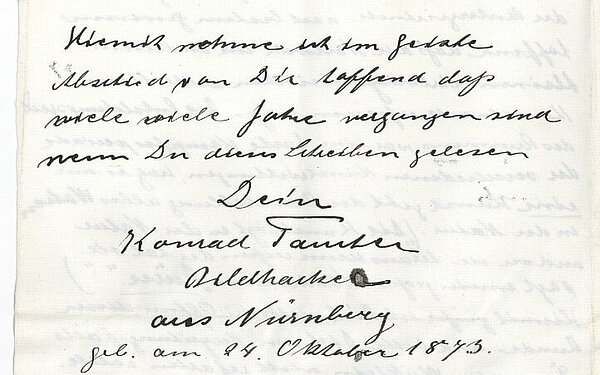 Hiemit nehme ich im Geiste
Abschied von Dir hoffend daß
viele viele Jahre vergangen sind
wenn Du dieses Schreiben gelesen
Dein
Konrad
Bildhauer
aus Nürnberg
geb. am 24. Oktober 1873.